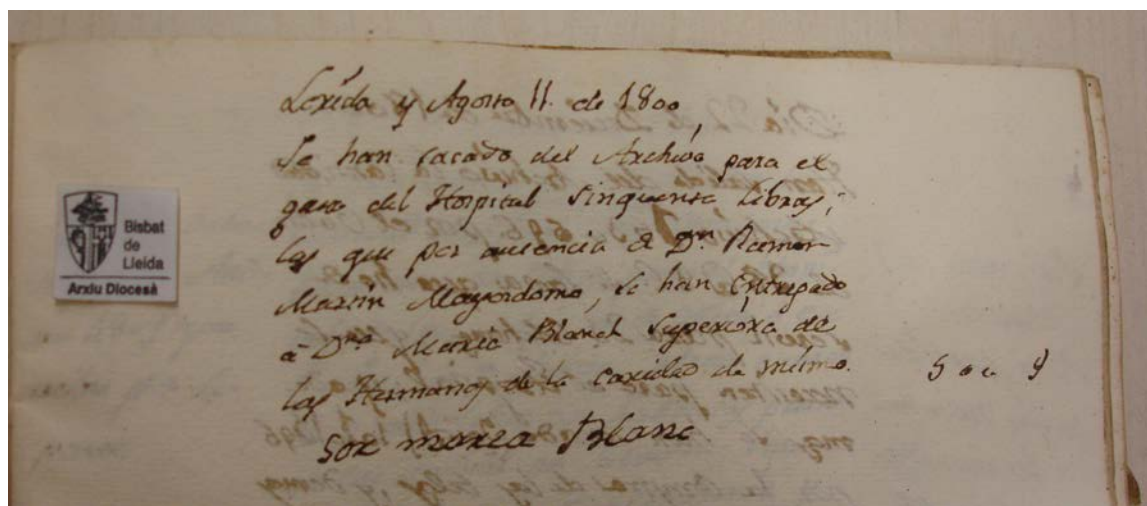 Lerida y Agosto 11. de 1800
Se han sacado del Archivo para el
gasto del Hospital Sinquenta libras,
las que por ausencia de Dn. Ramon
Martin Mayordomo, se han entregado
à Dna. Maria Blanch Superiora de
las Hermanas de la Caridad de mismo.
Sor maria Blanc
Bisbat
de
Lleida
Arxiu Diocesà